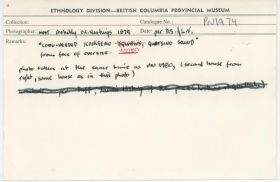 ETHNOLOGY DIVISION—BRITISH COLUMBIA PROVINCIAL MUSEUM
Collection: Catalogue No.: PN1974
Photographer: most probably O.C. Hastings 1879 Date: per
Remarks: "LONG-HEADED QUATSINO SOUND"
from face of oversize.
photo taken at the same time as PN 1980, (second house from
right, same house as in this photo)